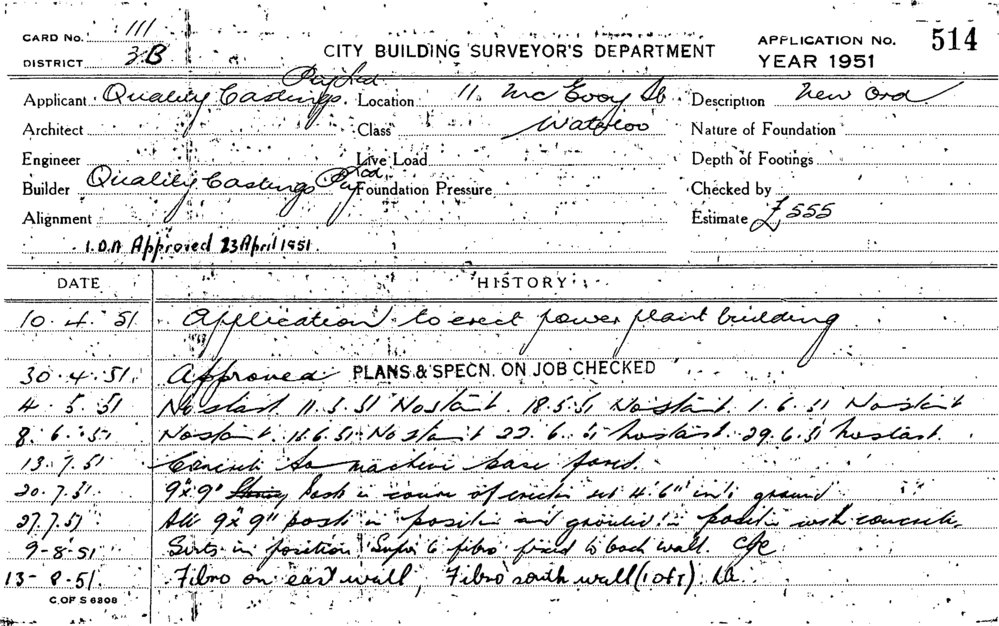 CARD No. 111
DISTRICT 3B
CITY BUILDING SURVEYOR'S DEPARTMENT
APPLICATION No. 514
YEAR 1951
Applicant Quality Castings Pty Ltd Location 11. McEvoy St Description New Ord
Architect Class Waterloo Nature of Foundation
Engineer Live Load Depth of Footings
Builder Quality Castings Pty Ltd Foundation Pressure Checked by
Alignment Estimate £555
Approved 23 April 1951.
DATE HISTORY
10. 4. 51 Application to erect power plant building
30. 4. 51. Approved PLANS & SPECN. ON JOB CHECKED
4. 5. 51 No start 11.5.51 No start. 18.5.51 No start. 1.6.51 No start
8. 6. 51 No start. No start 22.6.51 No start. 29.6.51 No start.
13. 7. 51 Concrete machine base
20. 7. 51 9"x9" in course of erection set 4'6" into ground
27.7.51 All 9"x9" posts in position and grouted in position with concrete.
9-8-51 in position Super 6 fibro fixed to back wall.
13-8-51. Fibro on east wall, Fibro south wall (1 of 1)
C. OF S 6808